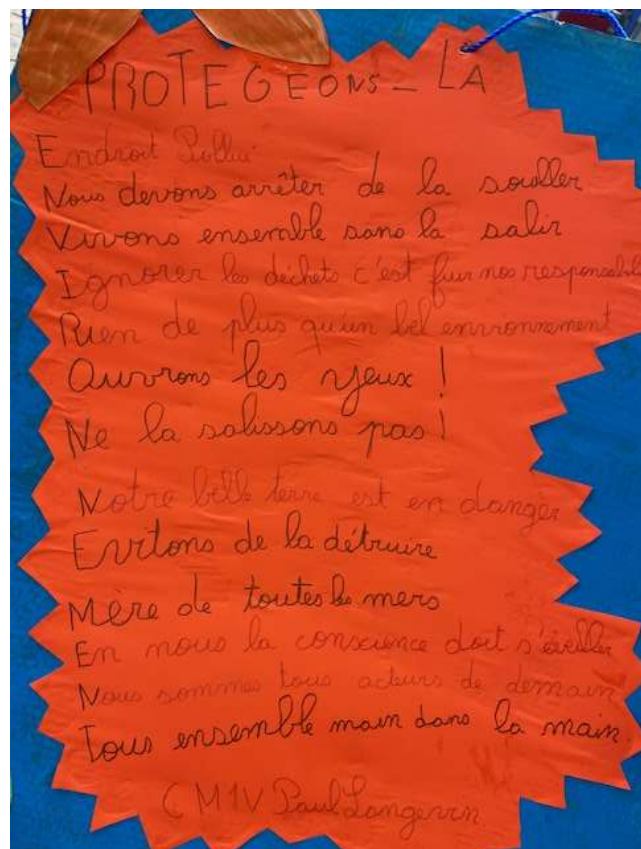 PROTEGEONS_ LA
Endroit Pollué
Nous devons arrêter de la souiller
Vivons ensemble sans la salir
Ignorer les déchets c'est fuir nos responsabili
Rien de plus qu'un bel environnement
Ouvrons les yeux !
Ne la salissons pas !
Notre belle terre est en danger
Evitons de la détruire
Mère de toutes les mers
En nous la conscience doit s'éveiller
Nous sommes tous acteurs de demain
Tous ensemble main dans la main.
CM1V Paul Langevin